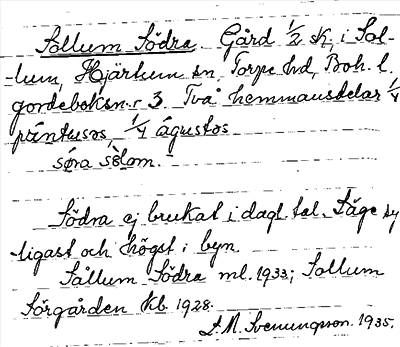 Sollum Södra. Gård 1/2 sk, i Sol-
-lum, Hjärtum sn, Torpe hd, Boh. l.
gordeboksn:r 3. Två hemmansdelar 1/4
píntusas, 1/4 águstas
søra sòlom.
Södra ej brukat i dagl. tal. Läge sy
-ligast och högst i byn.
Sållum Södra ml. 1933; Sollum
Sörgården Kb 1928.
L. M. Svenungsson. 1935.